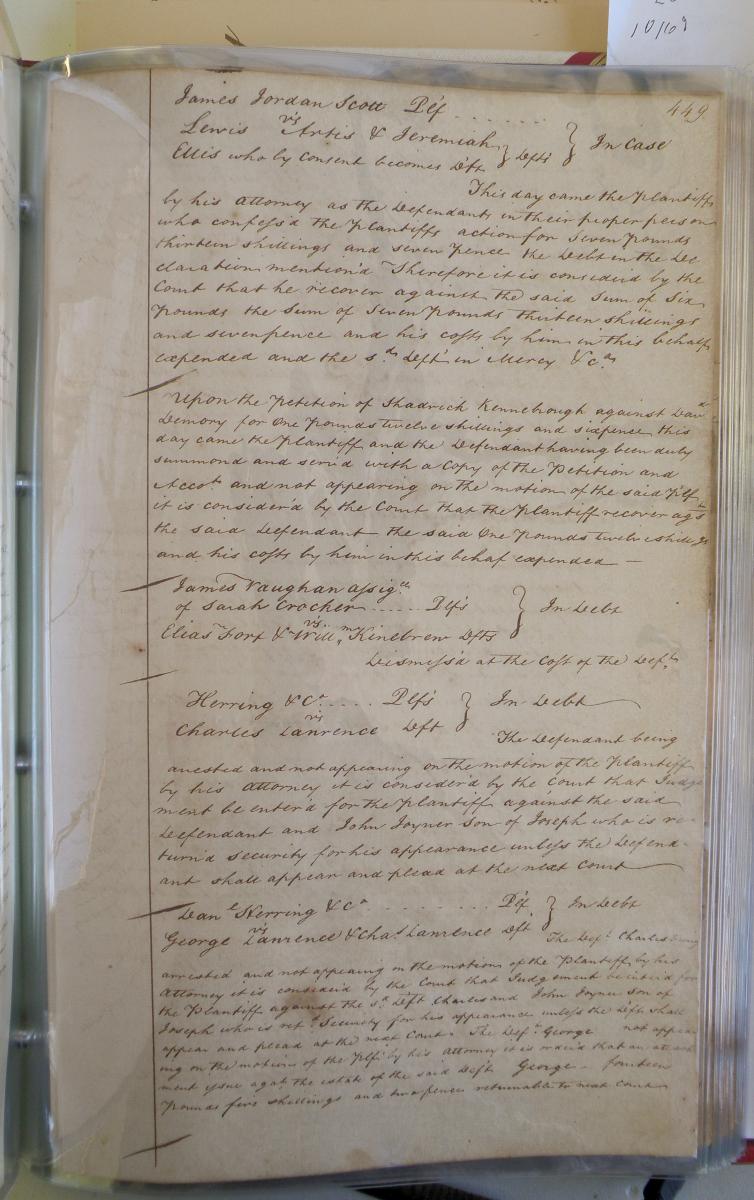 10/69
449
James Jordan Scott Plf . . . . . . .
vs
Lewis Artis & Jeremiah } Defts } In Case
Ellis who by Consent becomes Dft
This day came the Plantiff
by his Attorney as the Defendants in their proper person
who confess'd the Plantiffs action for Seven Pounds
thirteen shillings and seven pence the Debt in the De
claration mention'd Therefore it is considerd by the
Court that he recover against the said Sum of Six
Pounds the Sum of Seven Pounds thirteen shillings
and sevenpence and his costs by him in this behalf
expended and the sd Deft in Mercy &ca
Upon the Petition of Shadrick Kennebrough against Davd
Demory for One Pounds twelve shillings and sixpence this
day came the Plantiff and the Defendant having been duly
summond and servd with a Copy of the Petition and
Accot and not appearing on the motion of the said Plf
it is consider'd by the Court that the Plantiff recover agst
the said Defendant the said One Pounds twelve shillings
and his costs by him in this behaf expended —
James Vaughan Assigee
of Sarah Crocher . . . . . Plfs } In Debt
vs
Elias Fort & Willm Kinebrew Dfts
Dismiss'd at the Cost of the Defts
Herring & Ca . . . . Plfs } In Debt
vs
Charles Lawrence Dft
The Defendant being
arrested and not appearing on the motion of the Plantiff
by his Attorney it is consider'd by the Court that Judge
ment be enter'd for the Plantiff against the said
Defendant and John Joyner son of Joseph who is re-
turn'd security for his appearance unless the Defend-
ant shall appear and plead at the next Court
Danl Herring & Ca . . . . . . . . Plf } In Debt
vs
George Lawrence & Chas Lawrence Dft
The Deft Charles being
arrested and not appearing on the motion of the Plantiff by his
Attorney it is considerd by the Court that Judgement be enterd for
the Plantiff against the sd Deft Charles and John Joyner son of
Joseph who is retd Security for his appearance unless the Deft shall
appear and plead at the next Court. The Deft George not appear
ing on the motion of the Plf by his Attorney it is orderd that an attach
ment issue agat the estate of the said Deft George - fourteen
Pounds five shillings and two pence returnable to next Court